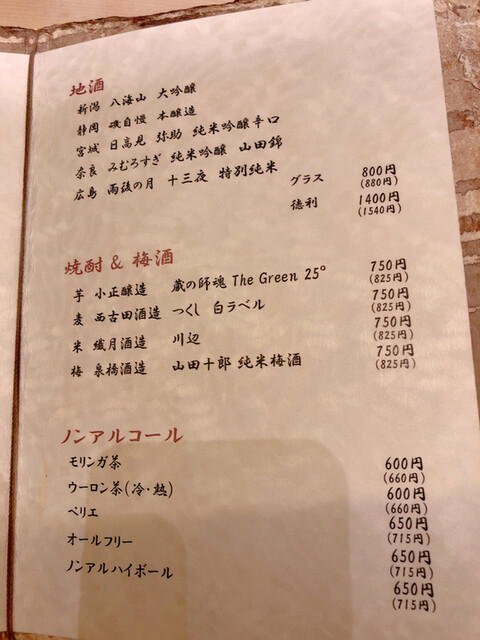 地酒
新潟 八海山 大吟醸
静岡 磯自慢 本醸造
宮城 日高見 弥助 純米吟醸辛口
奈良 みむろすぎ 純米吟醸 山田錦
広島 雨後の月 十三夜 特別純米
グラス 800円
(880円)
徳利 1400円
(1540円)
焼酎 & 梅酒
芋 小正醸造 蔵の師魂 The Green 25° 750円
(825円)
麦 西吉田酒造 つくし 白ラベル 750円
(825円)
米 繊月酒造 川辺 750円
(825円)
梅 泉橋酒造 山田十郎 純米梅酒 750円
(825円)
ノンアルコール
モリンガ茶 600円
(660円)
ウーロン茶(冷・熱) 600円
(660円)
ペリエ 650円
(715円)
オールフリー 650円
(715円)
ノンアルハイボール 650円
(715円)